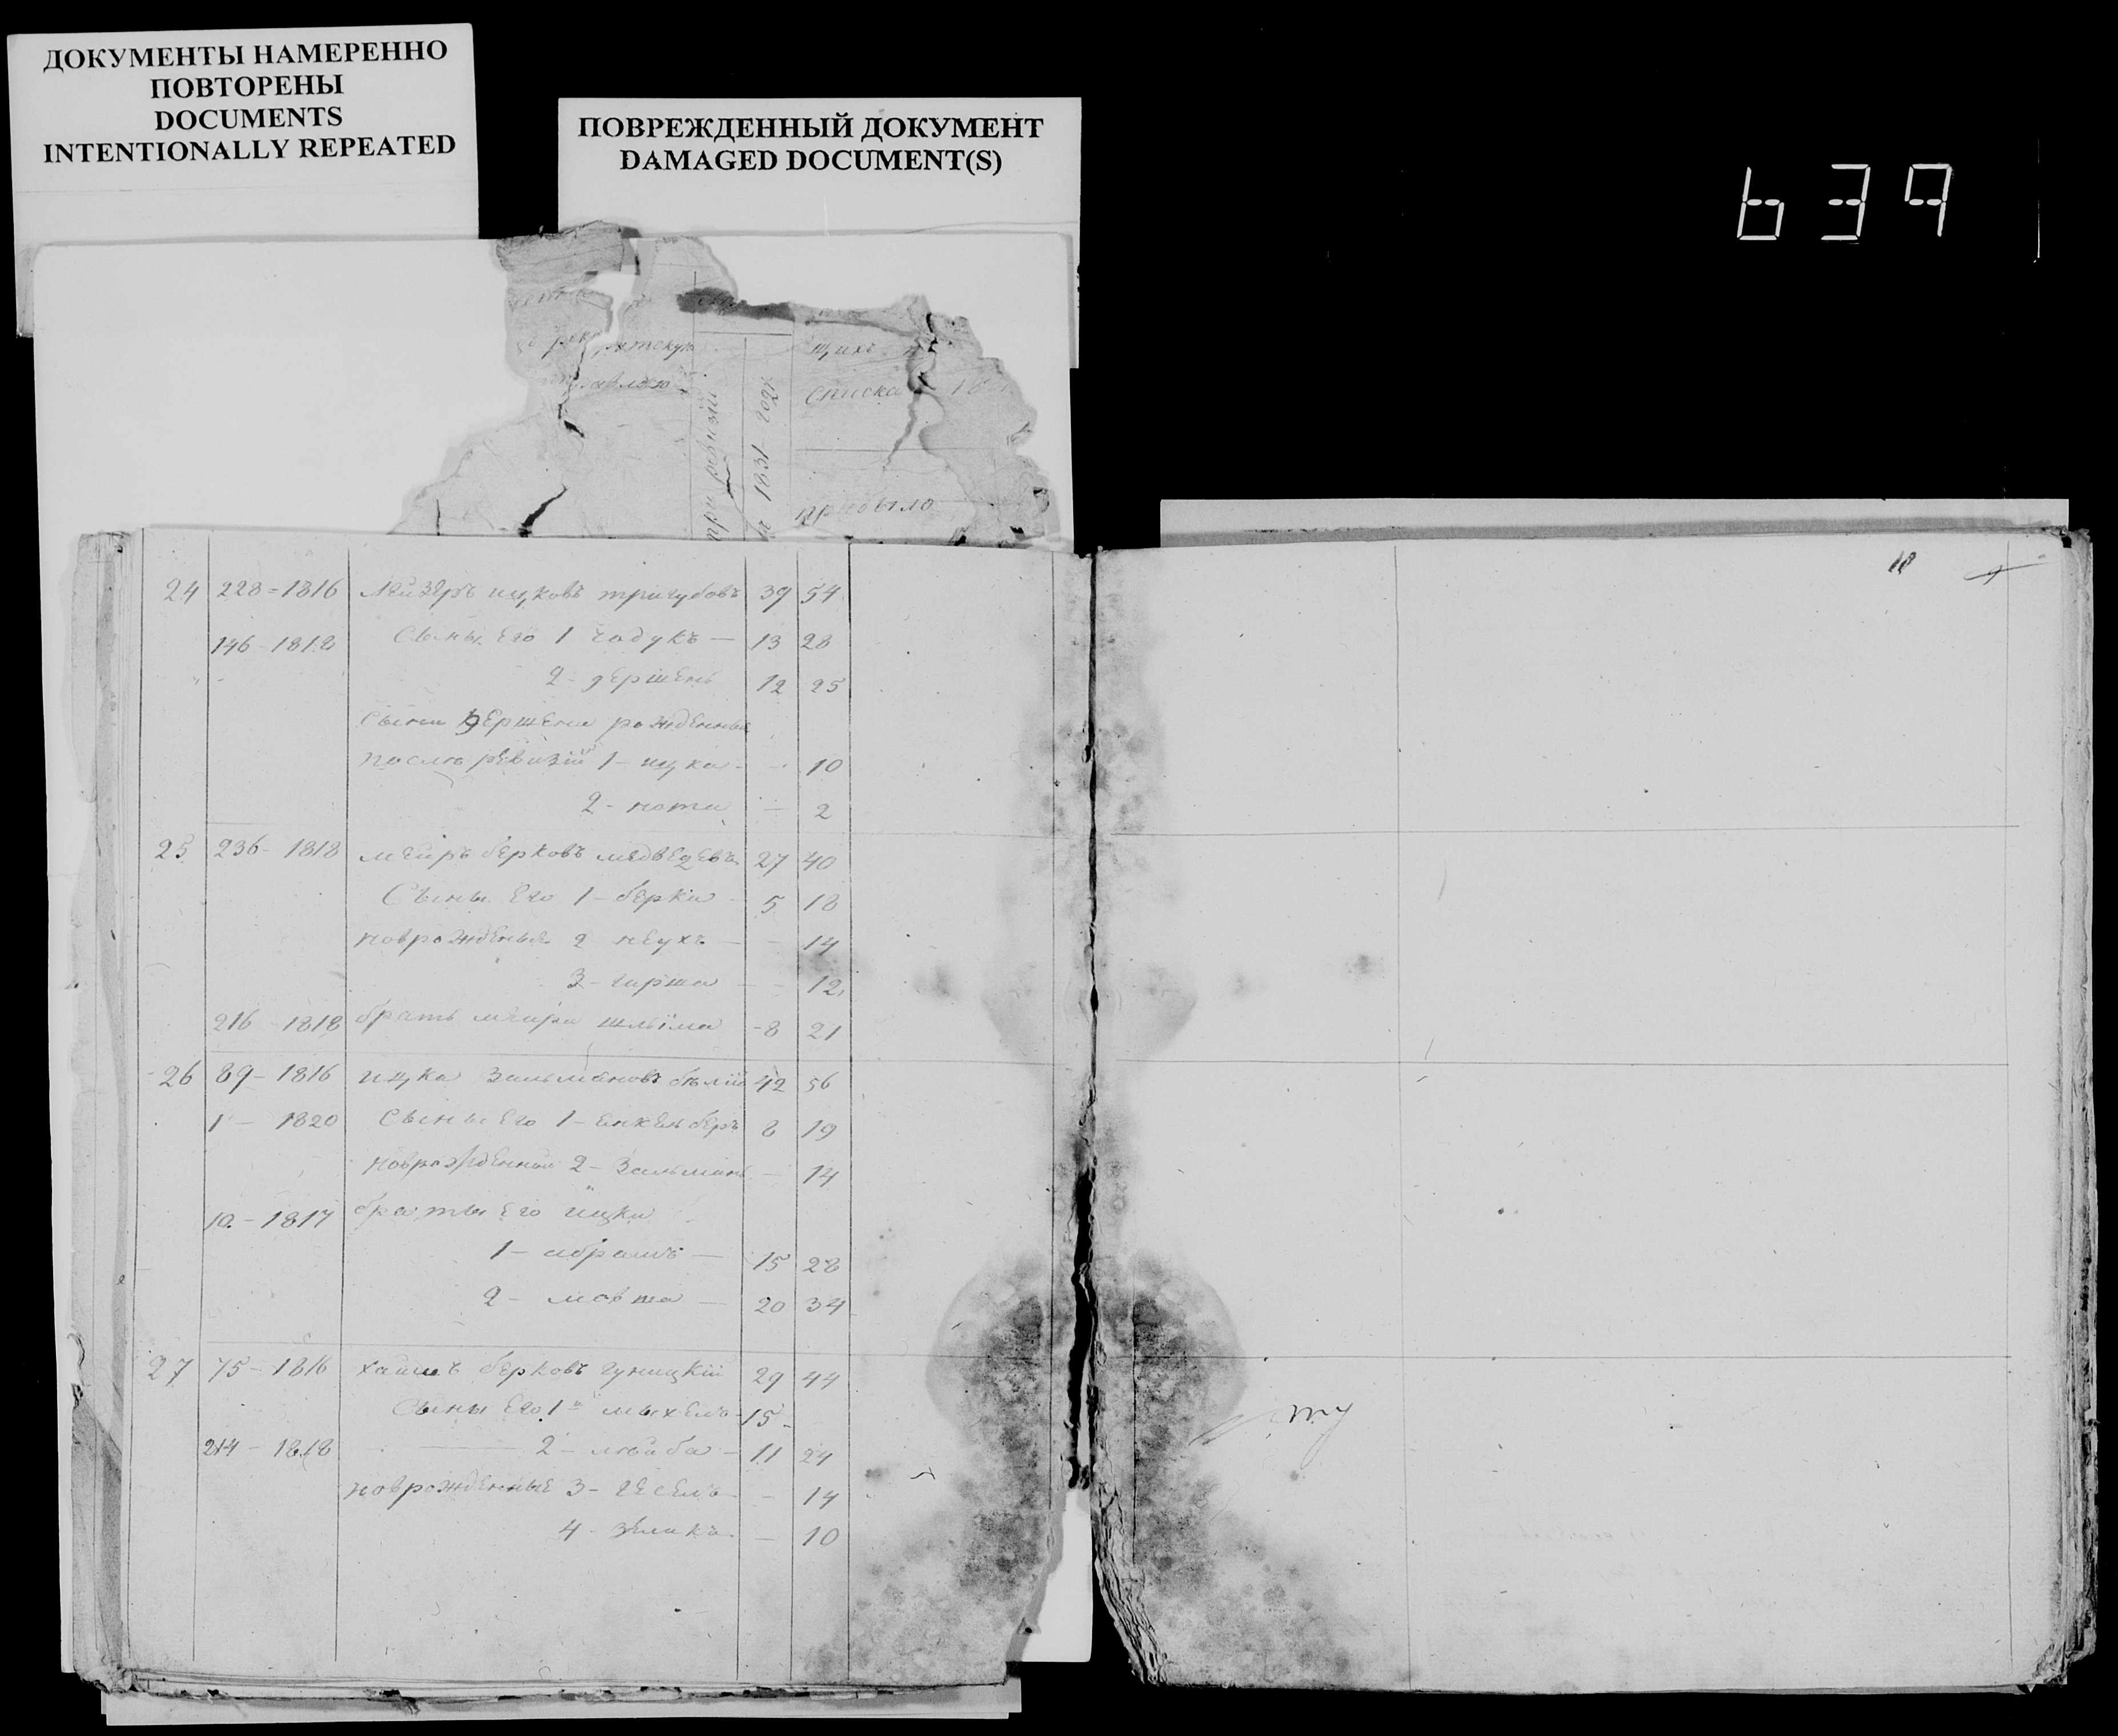 ДОКУМЕНТЫ НАМЕРЕННО
ПОВТОРЕНЫ
DOCUMENTS
INTENTIONALLY REPEATED
ПОВРЕЖДЕННЫЙ ДОКУМЕНТ
DAMAGED DOCUMENT(S)
639
щихъ
списка
при ревизіи
1831 году
прибыло
18
24 228=1816 Лейзеръ ицковъ тригубовъ 39 54
146-1818 Сыны Его 1 - 13 28
2- гершень 12 25
Сыны гершена рожденные
после ревизіи 1- ицка - 10
2- нота - 2
25 236-1818 меиръ берковъ медведевъ 27 40
Сыны Его 1- берка 5 18
новрожденые 2 - 14
3- гирша - 12
216-1818 братъ меира шлиома 8 21
26 89-1816 ицка Зальмановъ белій 42 56
1-1820 Сыны Его 1- янкель беръ 8 19
новрожденной 2- Зальманъ - 14
10-1817 браты Его ицки
1- абрамъ - 15 28
2- мовша - 20 34
27 75-1816 хаимъ берковъ гуницкій 29 44
Сыны Его 1- мыхель 15 -
214-1818 2- лейба - 11 24
новрожденные 3- гесель - 14
4- зелика - 10